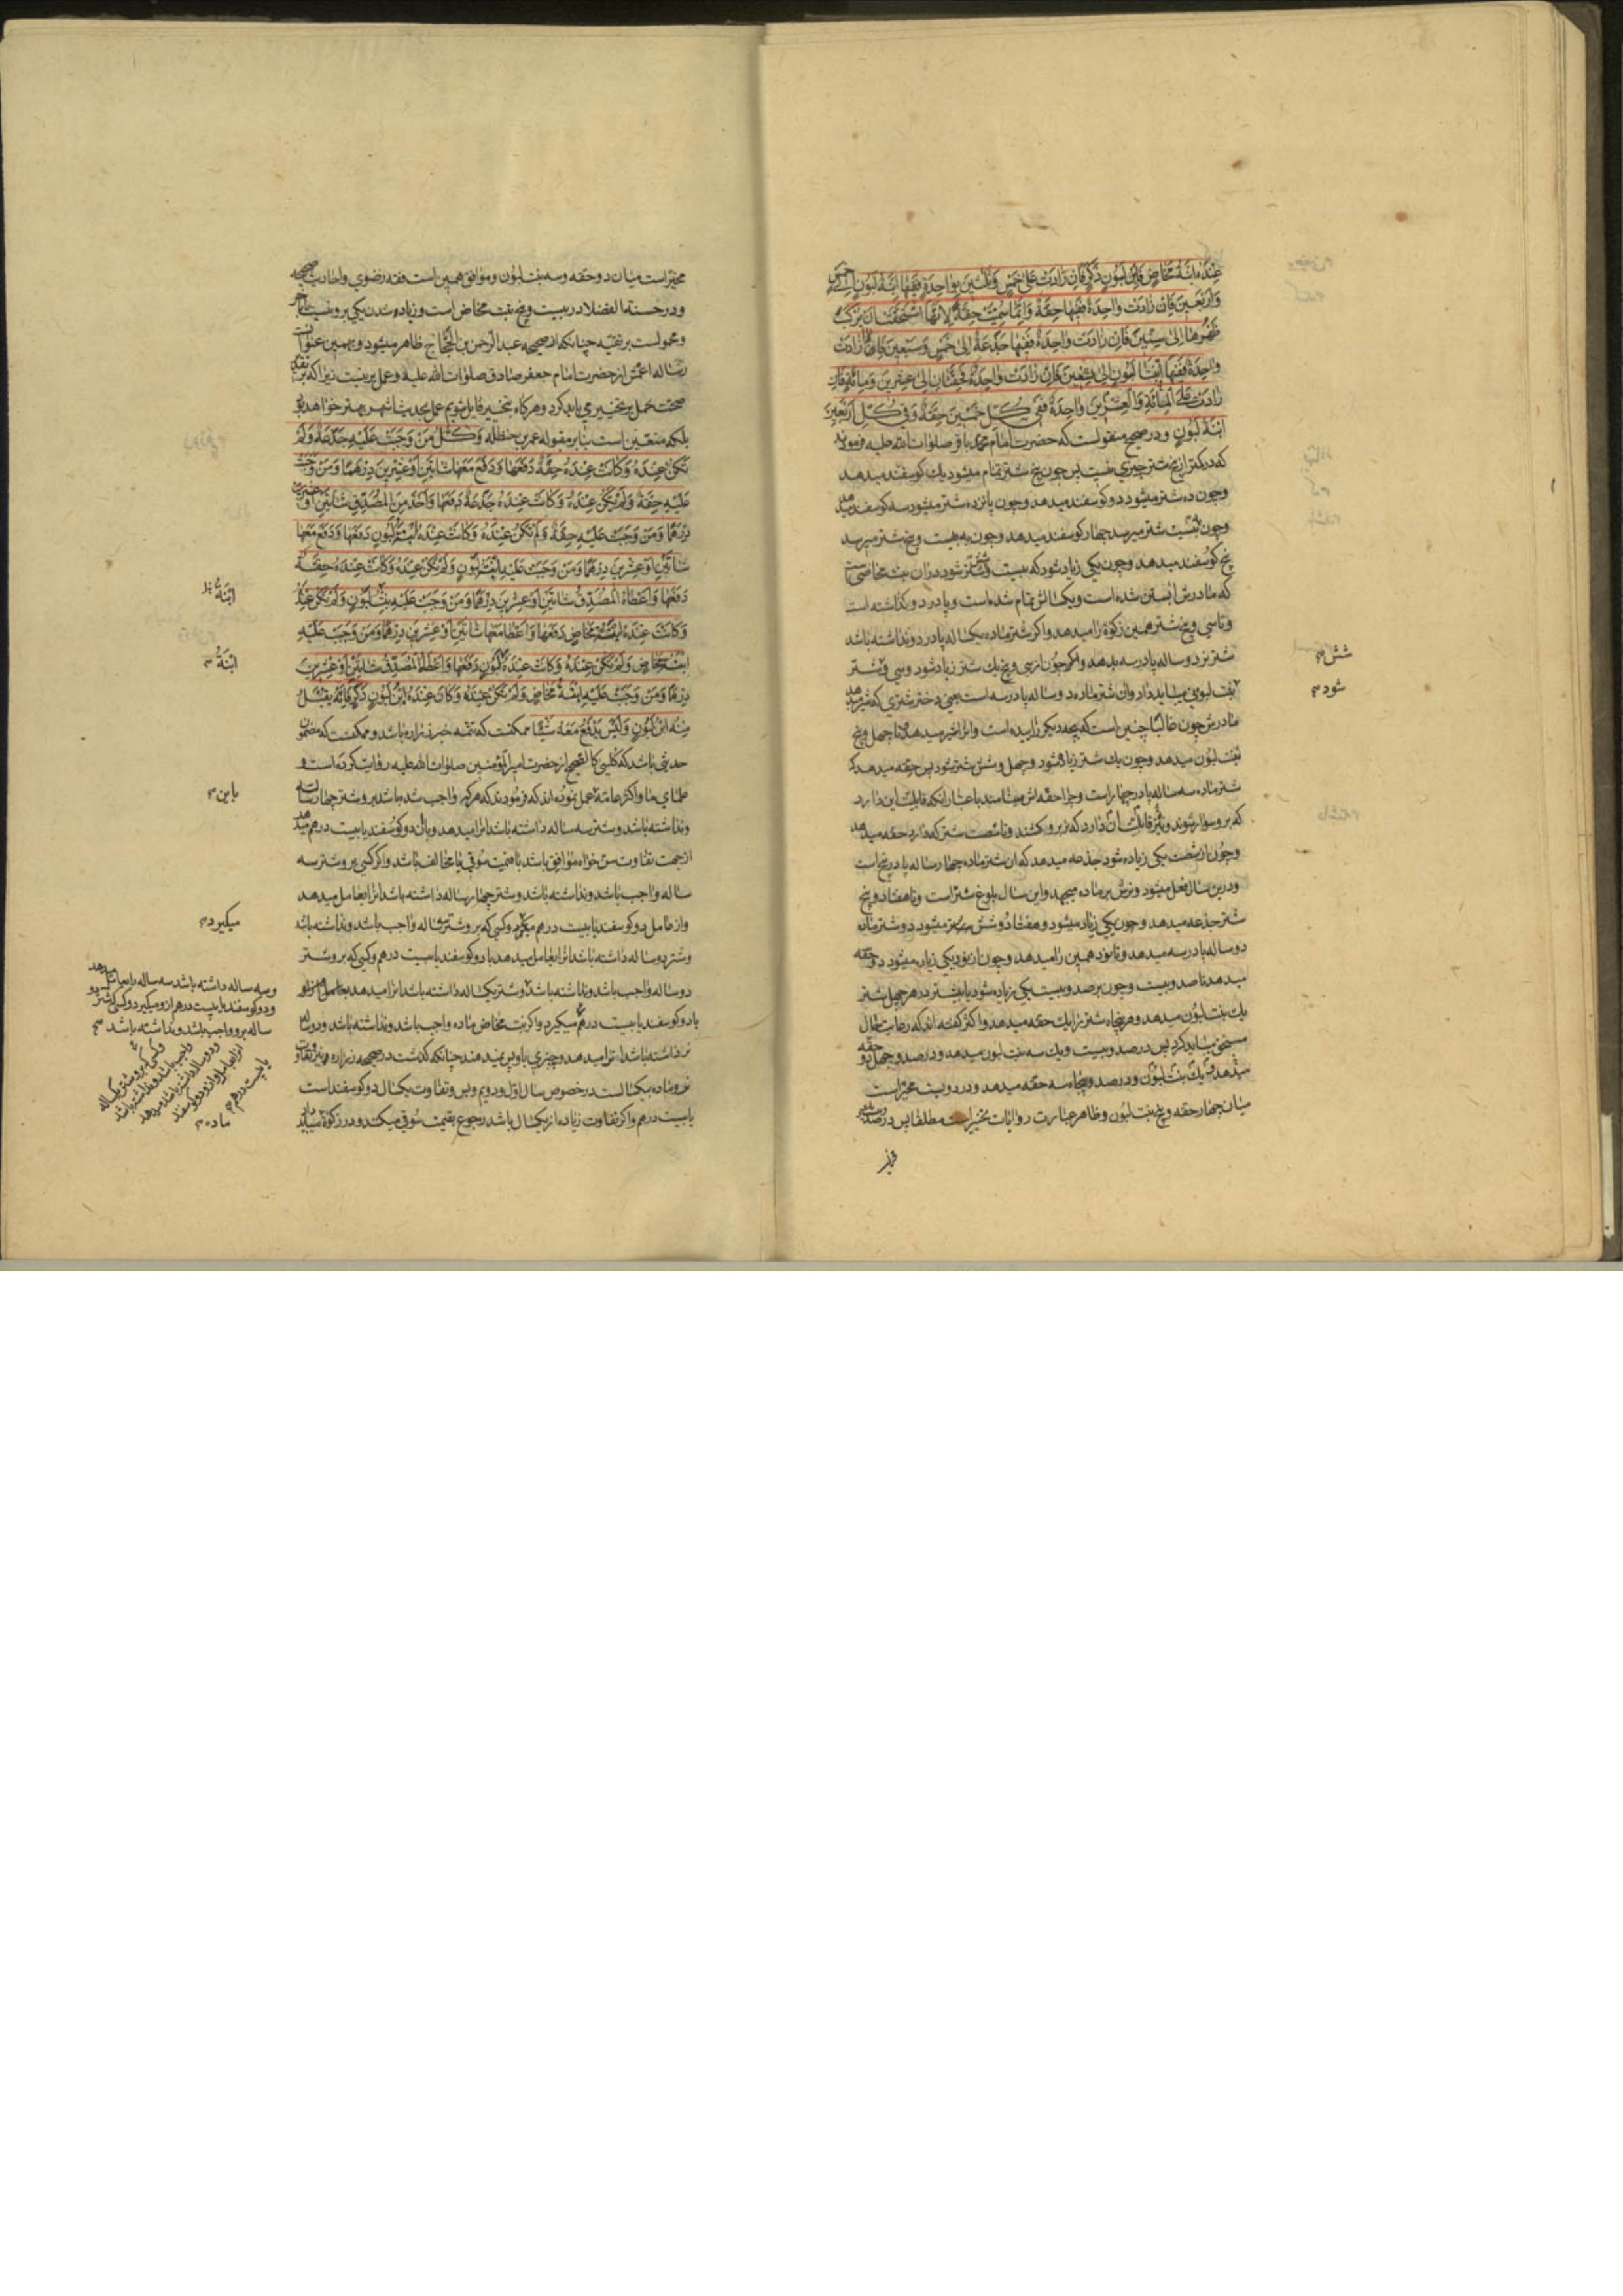 عِنْدَهُ ابْنَةُ مَخَاضٍ فَابْنُ لَبُونٍ ذَكَرٌ فَاِنْ زَادَتْ عَلٰی خَمْسٍ وَثَلٰثِینَ بِوَاحِدَةٍ فَفِیهَا ابْنَةُ لَبُونٍ اِلٰی خمس
وَاَرْبَعِینَ فَاِنْ زَادَتْ وَاحِدَةٌ فَفِیهَا حِقَّةٌ وَاِنَّمَا سُمِّیَتْ حِقَّةً لِاَنَّهَا اسْتَحَقَّتْ اَنْ یُرْکَبَ
ظَهْرُهَا اِلٰی سِتِّینَ فَاِنْ زَادَتْ وَاحِدَةٌ فَفِیهَا جَذَعَةٌ اِلٰی خَمْسٍ وَسَبْعِینَ فَاِنْ زَادَتْ
وَاحِدَةٌ فَفِیهَا ابْنَتَا لَبُونٍ اِلٰی تِسْعِینَ فَاِنْ زَادَتْ وَاحِدَةٌ فَحِقَّتَانِ اِلٰی عِشْرِینَ وَمِائَةٍ فَاِنْ
زَادَتْ عَلَی الْمِائَةِ وَالْعِشْرِینَ وَاحِدَةٌ فَفِی کُلِّ خَمْسِینَ حِقَّةٌ وَفِی کُلِّ اَرْبَعِینَ
ابْنَةُ لَبُونٍ ودر صحیح منقولست که حضرت امام محمد باقر صلوات الله علیه فرمودند
که در کمتر از پنج شتر چیزی نیست پس چون پنج شتر تمام میشود یك کوسفند میدهد
وچون ده شتر میشود دو کوسفند میدهد وچون پانزده شتر میشود سه کوسفند میدهد
وچون به بیست شتر میرسد چهار کوسفند میدهد وچون به بیست وپنج شتر میرسد
پنج کوسفند میدهد وچون یکی زیاد شود که بیست وشش شتر شود دران بنت مخاضی است
که مادرش ابستن شده است ویکسالش تمام شده است وپا در دو کذاشته است
وتا سی وپنج شتر همین زکوة را میدهد واکر شتر ماده یکساله پا در دو نداشته باشد
شتر نر دو ساله پا در سه بدهد وچون از سی وپنج یك شتر زیاد شود وسی وشتر
بنت لبونی میباید داد وان شتر ماده دو ساله پا در سه است یعنی دختر شتری که شیر میدهد
مادرش چون غالبًا چنین است که بچه دیکر زاییده است وانرا شیر میدهد تا چهل وپنج
بنت لبون میدهد وچون یك شتر زیاد شود وچهل وشش شتر شود پس حقه میدهد که
شتر ماده سه ساله پا در چهار است وچرا حقه اش مینامند باعتبار انکه قابلیت این دارد
که برو سوار شوند ونیز قابلیت ان دارد که نر برو کشند وتا شصت شتر که دارد حقه میدهد
وچون از شصت یکی زیاده شود جذعه میدهد که ان شتر ماده چهار ساله پا در پنج است
ودرین سال فحل میشود ونرش بر ماده میجهد واین سال بلوغ شتر است وتا هفتاد وپنج
شتر جذعه میدهد وچون یکی زیاد میشود وهفتاد وشش شتر میشود دو شتر ماده
دو ساله پا در سه میدهد وتا نود همین را میدهد وچون از نود یکی زیاد میشود دو حقه
میدهد تا صد وبیست وچون بر صد وبیست یکی زیاده شود یا بیشتر در هر چهل شتر
یك بنت لبون میدهد وهر پنجاه شتر را یك حقه میدهد واکثر کفته اند که رعایت حال
مستحق میباید کرد پس در صد وبیست ویك سه بنت لبون میدهد ودر صد وچهل دو حقه
میدهد ویك بنت لبون ودر صد وپنجاه سه حقه میدهد ودر دویست مخیر است
میان چهار حقه وپنج بنت لبون وظاهر عبارت روایات تخییر است مطلقا پس در صد
شش
شود
مخیر است میان دو حقه وسه بنت لبون وموافق همین است فقه رضوی واحادیث صحیحه
ودر حسنة الفضلا در بیست وپنج بنت مخاض است وزیاده شدن یکی بر وبیست
ومحمولست بر تقیه چنانکه از صحیحه عبد الرحمن بن الحجاج ظاهر میشود وبهمین عنوان
رساله اعمش از حضرت امام جعفر صادق صلوات الله علیه وعمل برینست زیرا که بر تقدیر
صحت حمل بر تخییر می باید کرد وهرکاه بتخییر قایل شویم عمل بحدیث اشهر بهتر خواهد بود
بلکه متعین است بنا بر مقوله عمر بن حنظله وَکُلُّ مَنْ وَجَبَتْ عَلَیْهِ جَذَعَةٌ وَلَمْ
تَکُنْ عِنْدَهُ وَکَانَتْ عِنْدَهُ حِقَّةٌ دَفَعَهَا وَدَفَعَ مَعَهَا شَاتَیْنِ اَوْ عِشْرِینَ دِرْهَمًا وَمَنْ وَجَبَتْ
عَلَیْهِ حِقَّةٌ وَلَمْ یَکُنْ عِنْدَهُ وَکَانَتْ عِنْدَهُ جَذَعَةٌ دَفَعَهَا وَاَخَذَ مِنَ الْمُصَدِّقِ شَاتَیْنِ اَوْ عشرین
دِرْهَمًا وَمَنْ وَجَبَتْ عَلَیْهِ حِقَّةٌ وَلَمْ تَکُنْ عِنْدَهُ وَکَانَتْ عِنْدَهُ ابْنَةُ لَبُونٍ دَفَعَهَا وَدَفَعَ مَعَهَا
شَاتَیْنِ اَوْ عِشْرِینَ دِرْهَمًا وَمَنْ وَجَبَتْ عَلَیْهِ ابْنَةُ لَبُونٍ وَلَمْ تَکُنْ عِنْدَهُ وَکَانَتْ عِنْدَهُ حِقَّةٌ
دَفَعَهَا وَاَعْطَاهُ الْمُصَدِّقُ شَاتَیْنِ اَوْ عِشْرِینَ دِرْهَمًا وَمَنْ وَجَبَتْ عَلَیْهِ بِنْتُ لَبُونٍ وَلَمْ تَکُنْ عِنْدَهُ
وَکَانَتْ عِنْدَهُ ابْنَةُ مَخَاضٍ دَفَعَهَا وَاَعْطَا مَعَهَا شَاتَیْنِ اَوْ عِشْرِینَ دِرْهَمًا وَمَنْ وَجَبَ عَلَیْهِ
ابْنَةُ مَخَاضٍ وَلَمْ تَکُنْ عِنْدَهُ وَکَانَتْ عِنْدَهُ لَبُونٍ دَفَعَهَا وَاَعْطَاهُ الْمُصَدِّقُ شَاتَیْنِ اَوْ عِشْرِینَ
دِرْهَمًا وَمَنْ وَجَبَتْ عَلَیْهِ ابْنَةُ مَخَاضٍ وَلَمْ تَکُنْ عِنْدَهُ وَکَانَ عِنْدَهُ ابْنُ لَبُونٍ ذَکَرٌ فَاِنَّهُ یُقْبَلُ
مِنْهُ ابْنُ لَبُونٍ وَلَیْسَ یَدْفَعُ مَعَهُ شَیْئًا ممکنست که تتمه خبر زراره باشد وممکنست که مضمون
حدیثی باشد که کلینی کالصحیح از حضرت امیر المؤمنین صلوات الله علیه روایت کرده است و
علمای ما واکثر عامه عمل نموده اند که فرمودند که هرکه واجب شده باشد برو شتر چهار ساله
ونداشته باشد وشتر سه ساله داشته باشد انرا میدهد وبا ان دو کوسفند یا بیست درهم میدهد
از جهت تفاوت سن خواه موافق باشد با قیمت سوقی یا مخالف باشد واکر کسی برو شتر سه
ساله واجب باشد ونداشته باشد وشتر چهار ساله داشته باشد انرا بعامل میدهد
واز عامل دو کوسفند یا بیست درهم میکیرد وکسی که برو شتر سه ساله واجب باشد ونداشته باشد
وشتر دو ساله داشته باشد انرا بعامل میدهد با دو کوسفند یا بیست درهم وکسی که برو شتر
دو ساله واجب باشد ونداشته باشد وشتر یکساله داشته باشد انرا میدهد
با دو کوسفند یا بیست درهم میکیرد واکر بنت مخاض ماده واجب باشد ونداشته باشد
نر داشته باشد انرا میدهد وچیزی باو پس نمیدهند چنانکه کذشت در صحیحه زراره
نر وماده بیکسالست در خصوص سال اول ودویم وپس وتفاوت یکسال دو کوسفند است
یا بیست درهم واکر تفاوت زیاده از یکسال باشد رجوع بقیمت سوقی میکند ودر زکوة
ابْنَةُ
ابْنَةُ
باین
میکیرد
وسه ساله داشته باشد سه ساله را بعامل میدهد
ودو کوسفند یا بیست درهم ازو میکیرد وکسی که شتر دو
ساله برو واجب باشد ونداشته باشد
وکسی که برو شتر یکساله
واجب باشد ونداشته باشد
ودو ساله داشته باشد میدهد
یا بیست درهم
ماده